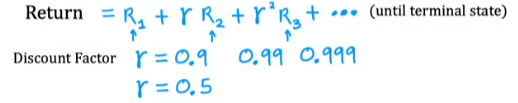 Return = R₁ + r R₂ + r² R₃ + ... (until terminal state)
Discount Factor r = 0.9 0.99 0.999
r = 0.5